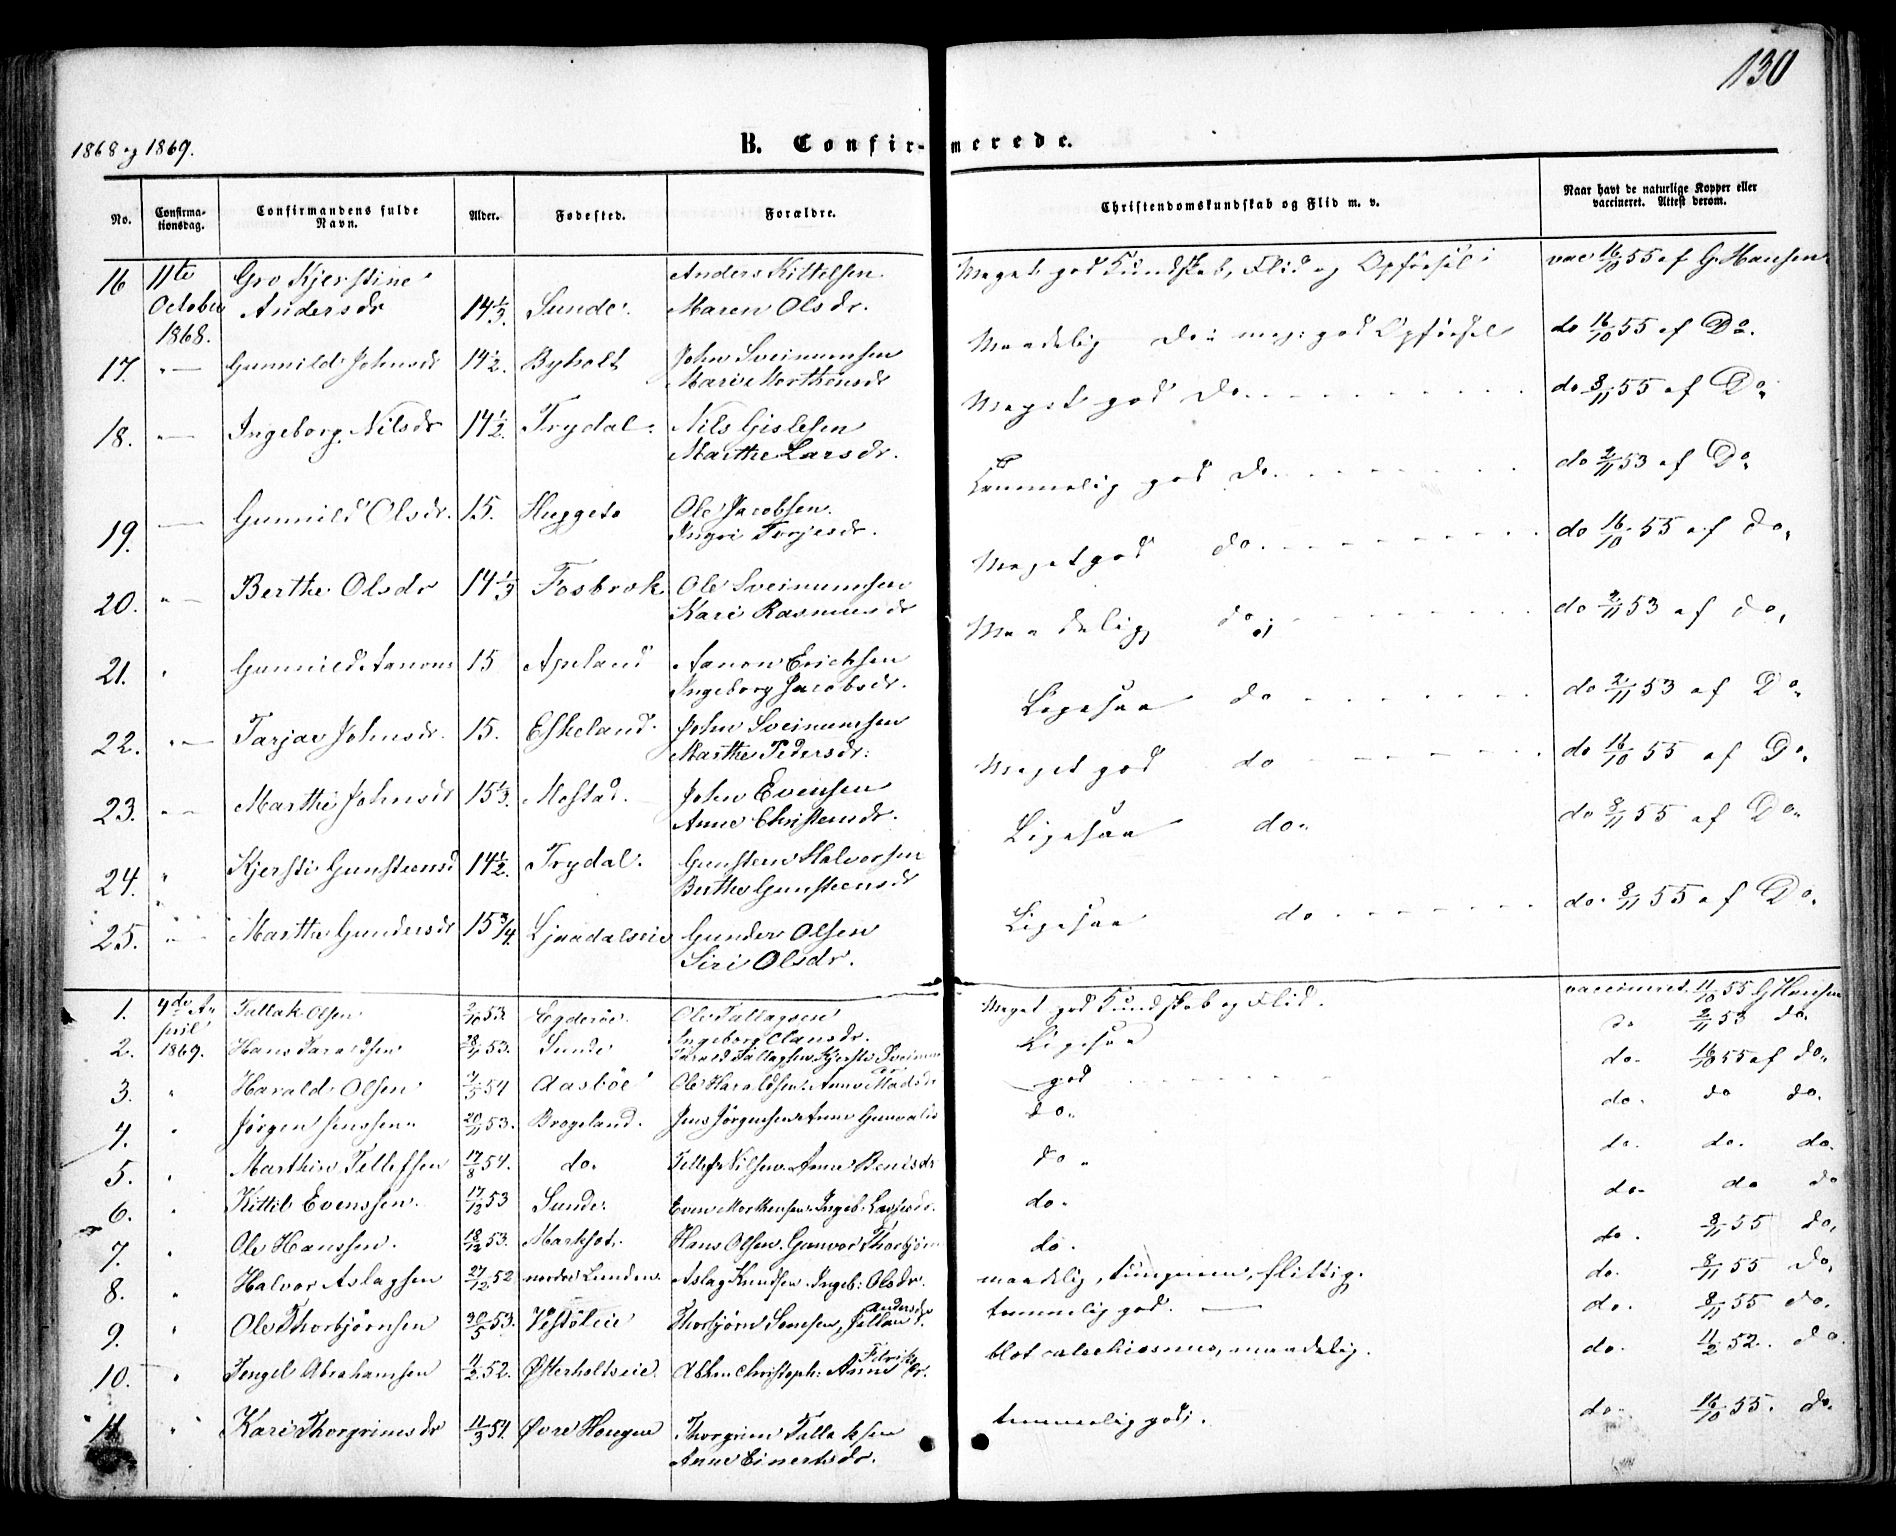 130
1868 og 1869.
B. Confirmerede.
No. Confirmationsdag. Confirmandens fulde Navn. Alder. Fødested. Forældre. Christendomskundskab og Flid m. v. Naar havt de naturlige Kopper eller vaccineret. Attest derom.
16 11te October 1868. Gro Kjerstine Andersdr 14 1/3. Sunde. Anders Kittelsen Maren Olsdr. Meget god Kundskab, Flid og Opførsel vac 16/10 55 af G. Hansen
17. " Gunnild Johnsdr 14 1/2. Byholt John Sveinumsen Marie Morthensdr Maadelig do meg: god Opførsel do 16/10 55 af Do.
18. " Ingeborg Nilsdr 14 1/2. Trydal. Nils Gislesen Marthe Larsdr. Meget god do do 8/11 55 af Do
19. Gunnild Olsdr. 15. Huggeto Ole Jacobsen. Ingri Terjesdr. Temmelig god do do 2/11 53 af Do
20. " Berthe Olsdr 14 1/3 Fosbrok Ole Sveinumsen Kari Rasmusdr Meget god do. do 16/10 55 af do.
21. " Gunnild Aanons 15 Apeland Aanon Ericksen Ingeborg Jacobsdr. Maadelig do do 2/11 53 af do.
22. " Tarjær Johnsdr. 15. Eskeland. John Sveinumsen Marthe Pedersdr. Ligesaa do do 2/11 53 af Do
23. " Marthe Johnsdr 15 1/3. Mostad. John Evensen Anne Christensdr. Meget god do do 16/10 55 af Do.
24. " Kjersti Gunsteensd 14 1/2. Trydal. Gunsten Halvorsen Berthe Gunsteensdr Ligesaa do. do 8/11 55 af Do.
25. " Marthe Gundersdr 15 3/4. Ljaadalseie Gunder Olsen Siri Olsdr. Ligesaa do do. 8/11 55 af Do.
1. 4de April 1869. Tallak Olsen 2/10 53. Egderøe. Ole Tallagsen Ingeborg Olausdr. Meget god Kundskab og Flid. vaccineret 11/10 55 G Hansen
2. Hans Taraldsen 28/11 53. Sunde Tarald Tallagsen, Kjersti Sveinum dr Ligesaa do 2/11 53 do.
3. " Harald Olsen 7/5 54 Aasbøe Ole Haraldsen. Anne Madsdr god do. 16/10 55 af do.
4. " Jørgen Jenssen. 20/11 53. Brogeland. Jens Jørgensen Anne Gunvalds do. do. do do.
5. " Marthin Tellefsen 17/8 54. do. Tellef Nilsen. Anne Benisdr do. do. do. do.
6. " Kittil Evenssen. 17/12 53 Sunde. Even Morthensen. Ingeb: Larsesdr. do. do. do do
7. " Ole Hanssen. 18/12 53. Markset. Hans Olsen. Gunvor Thorbjørn do. do. 8/11 55 do,
8. " Halvor Aslagsen 27/12 52 nordre Lunden. Aslag Knudsen. Ingeb: Olsdr. maadelig, tungnem, flittig. do. 8/11 55 do,
9. " Ole Thorbjørnsen 30/5 53. Vestøleie Thorbjørn Tomesen, Andersdr temmelig god. do. 8/11 55 do.
10. " Tengel Abrahamsen 11/2 52. Østerholtseie. Abhm Christoph: Anne Fedrik dr. blot catechismus, maadelig. do. 11/2 52. do
11. " Kari Thorgrimsdr 11/3 54. Øvre Hougen Thorgrim Tallaksen Anne Einertsdr. temmelig god. do. 16/10 55. do.